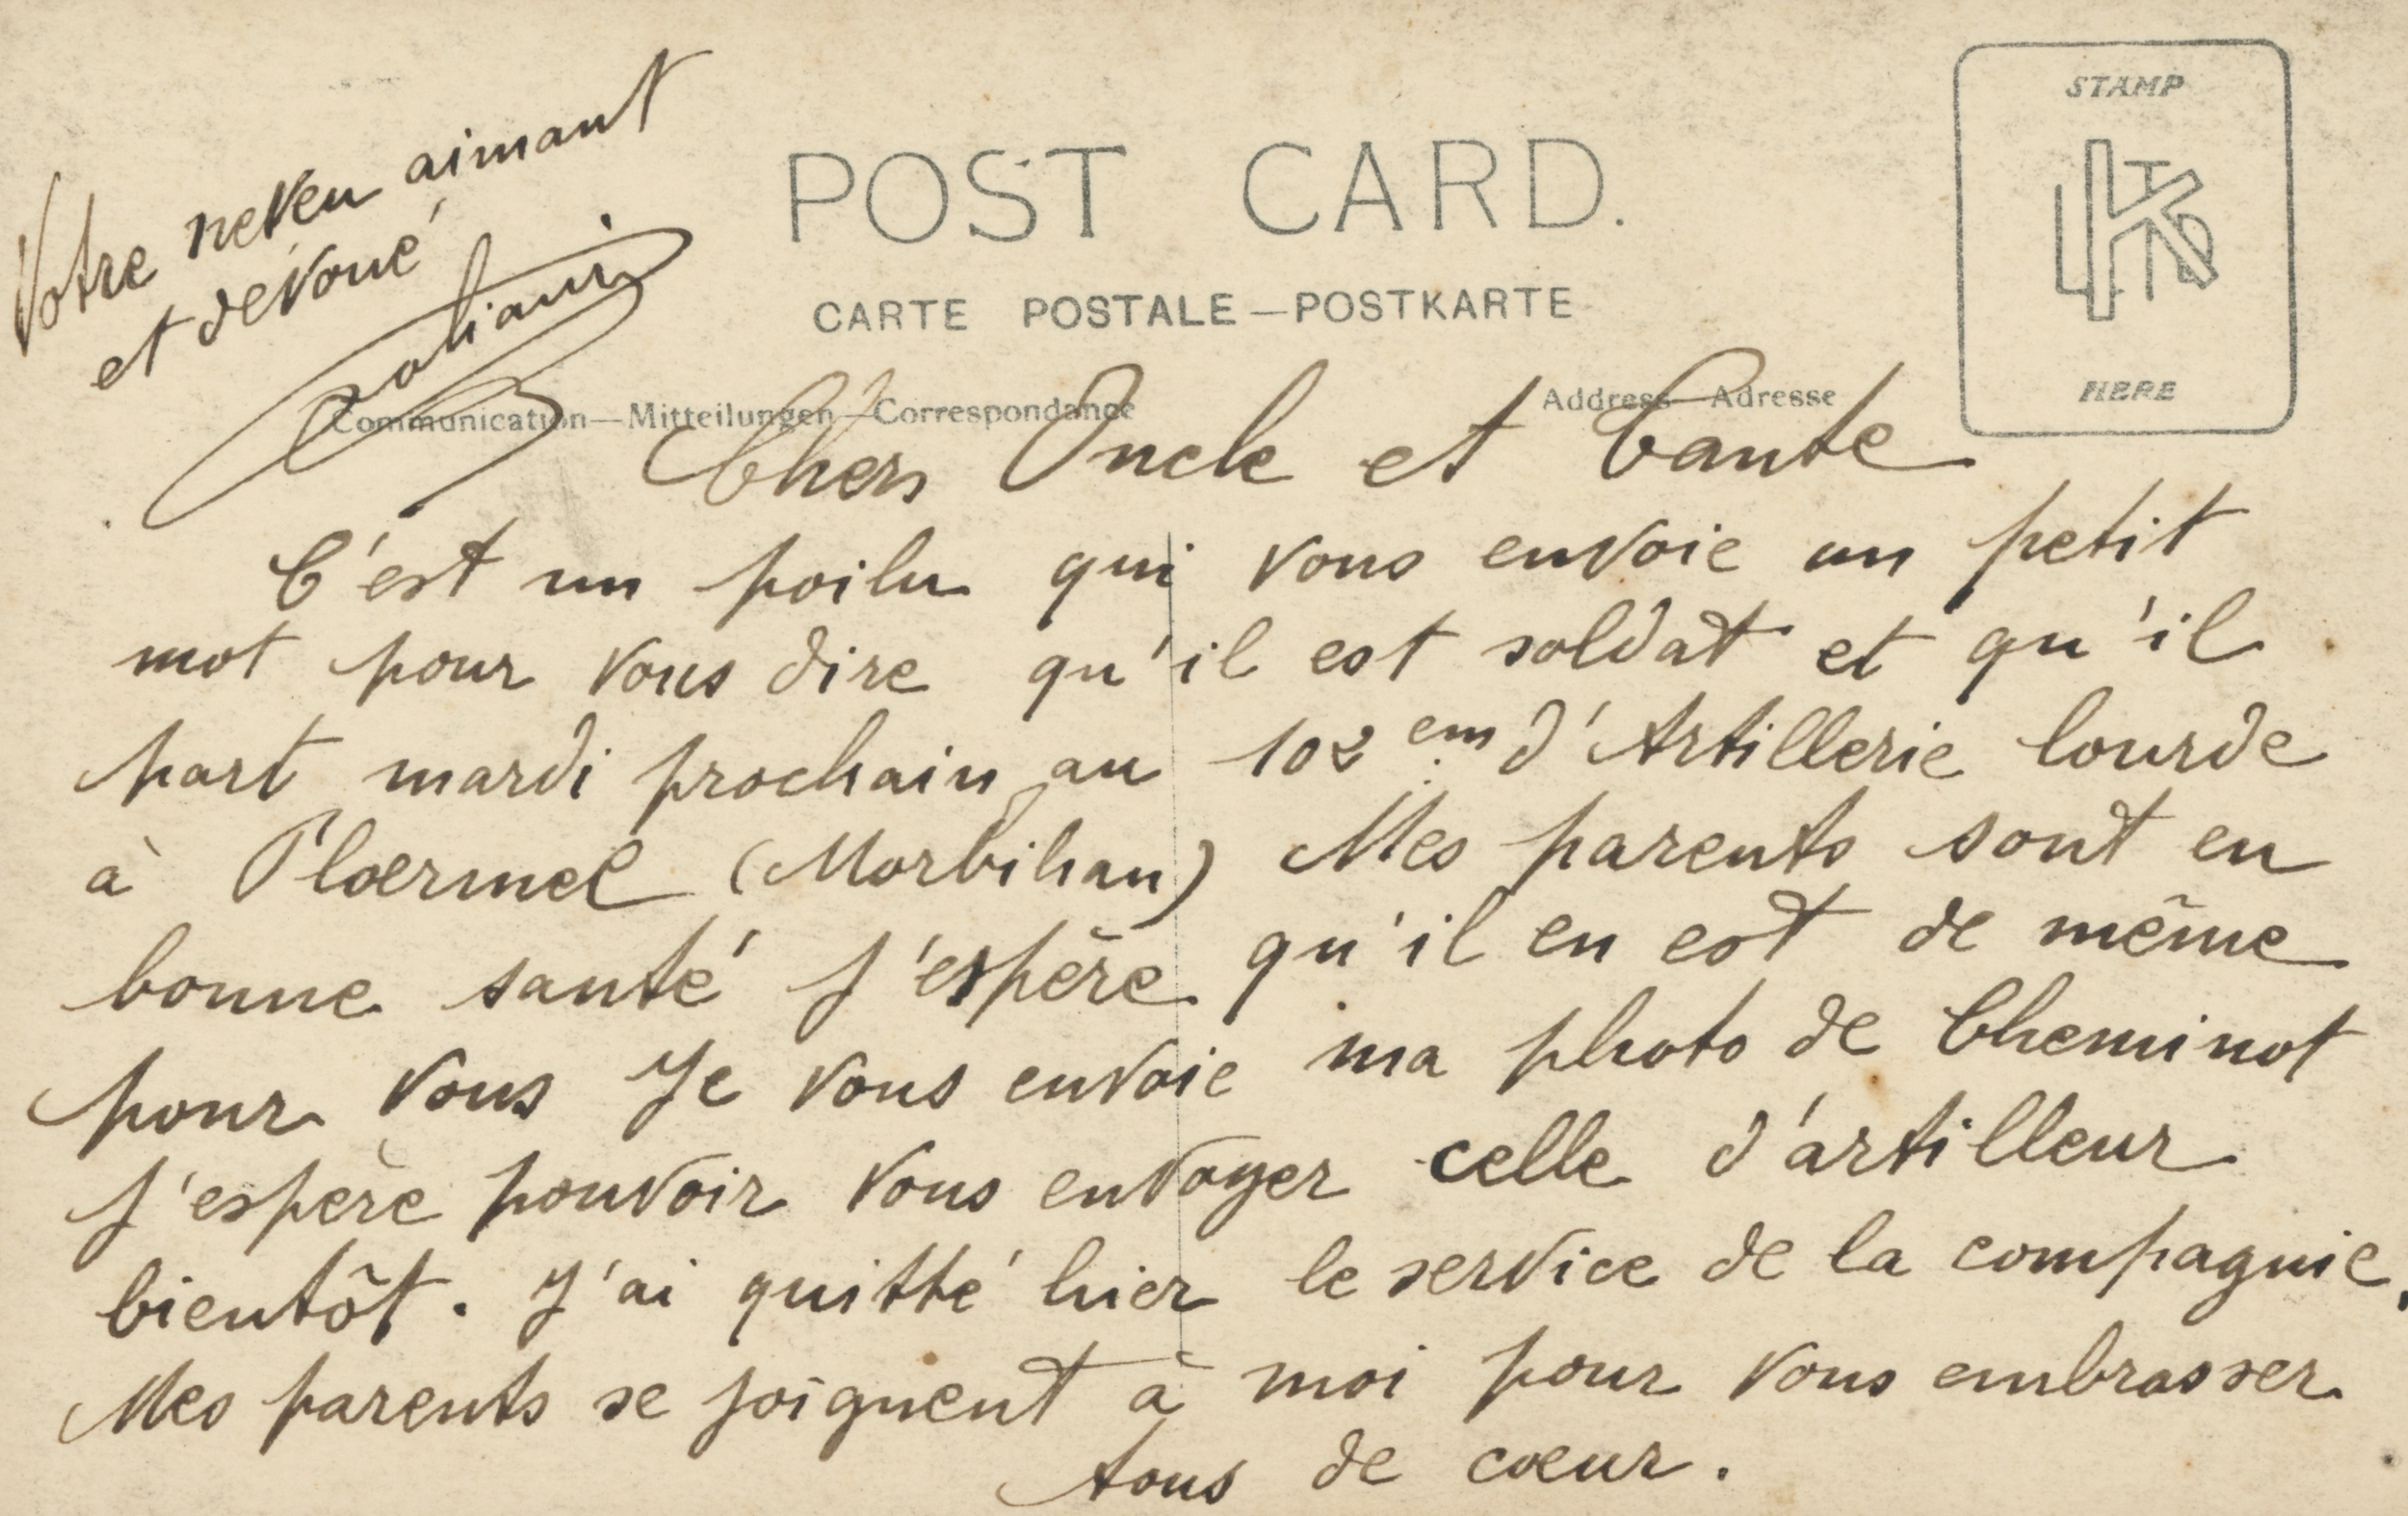 Votre neveu aimant
et dévoué
POST CARD.
CARTE POSTALE—POSTKARTE
STAMP
HERE
Communication—Mitteilungen—Correspondance
Address—Adresse
Chers Oncle et Tante
C'est un poilu qui vous envoie un petit
mot pour vous dire qu'il est soldat et qu'il
part mardi prochain au 102 em d'Artillerie lourde
à Ploermel (Morbihan) Mes parents sont en
bonne santé j'espère qu'il en est de même
pour vous Je vous envoie ma photo de Cheminot
j'espère pouvoir vous envoyer celle d'artilleur
bientôt. J'ai quitté hier le service de la compagnie,
Mes parents se joignent à moi pour vous embrasser
tous de cœur.